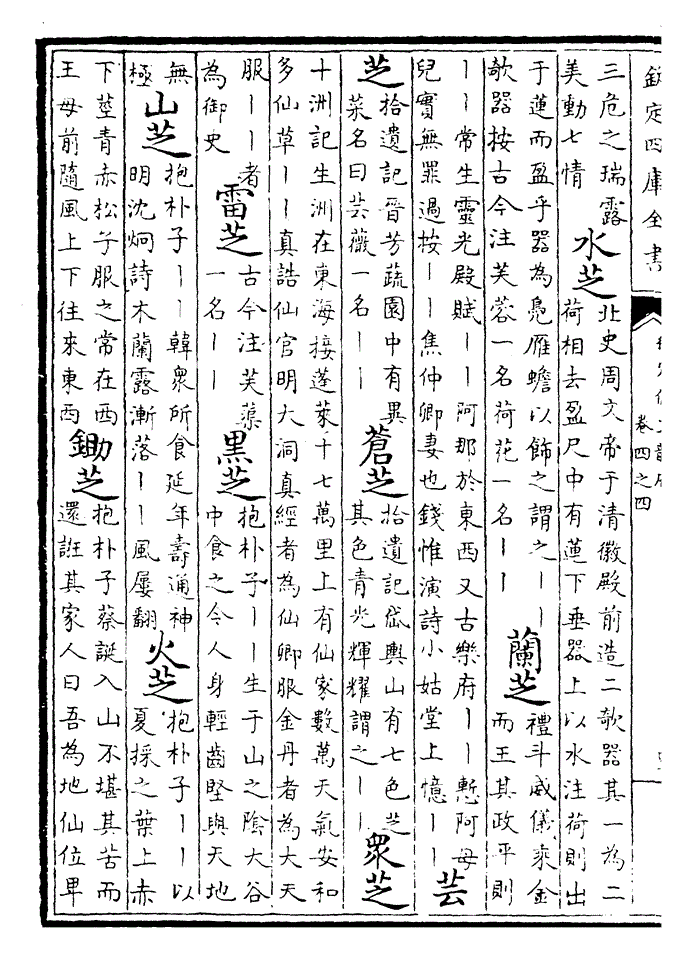 欽定四庫全書
卷四之四
三危之瑞露
美動七情
水芝
北史周文帝于清徽殿前造二欹器其一為二
荷相去盈尺中有蓮下垂器上以水注荷則出
于蓮而盈乎器為鳧雁蟾以飾之謂之丨丨
欹器按古今注芙蓉一名荷花一名丨丨
蘭芝
禮斗威儀乘金
而王其政平則
丨丨常生靈光殿賦丨丨阿那於東西又古樂府丨丨慙阿母
兒實無罪過按丨丨焦仲卿妻也錢惟演詩小姑堂上憶丨丨
芸
芝
拾遺記晉芳蔬園中有異
菜名曰芸薇一名丨丨
蒼芝
拾遺記岱輿山有七色芝
其色青光輝耀謂之丨丨
眾芝
十洲記生洲在東海接蓬萊十七萬里上有仙家數萬天氣安和
多仙草丨丨真誥仙官明大洞真經者為仙卿服金丹者為大天
服丨丨者
為御史
雷芝
古今注芙蕖
一名丨丨
黑芝
抱朴子丨丨生于山之陰大谷
中食之令人身輕齒堅與天地
無
極
山芝
抱朴子丨丨韓眾所食延年壽通神
明沈炯詩木蘭露漸落丨丨風屢翻
火芝
抱朴子丨丨以
夏採之葉上赤
下莖青赤松子服之常在西
王母前隨風上下往來東西
鋤芝
抱朴子蔡誕入山不堪其苦而
還誑其家人曰吾為地仙位卑